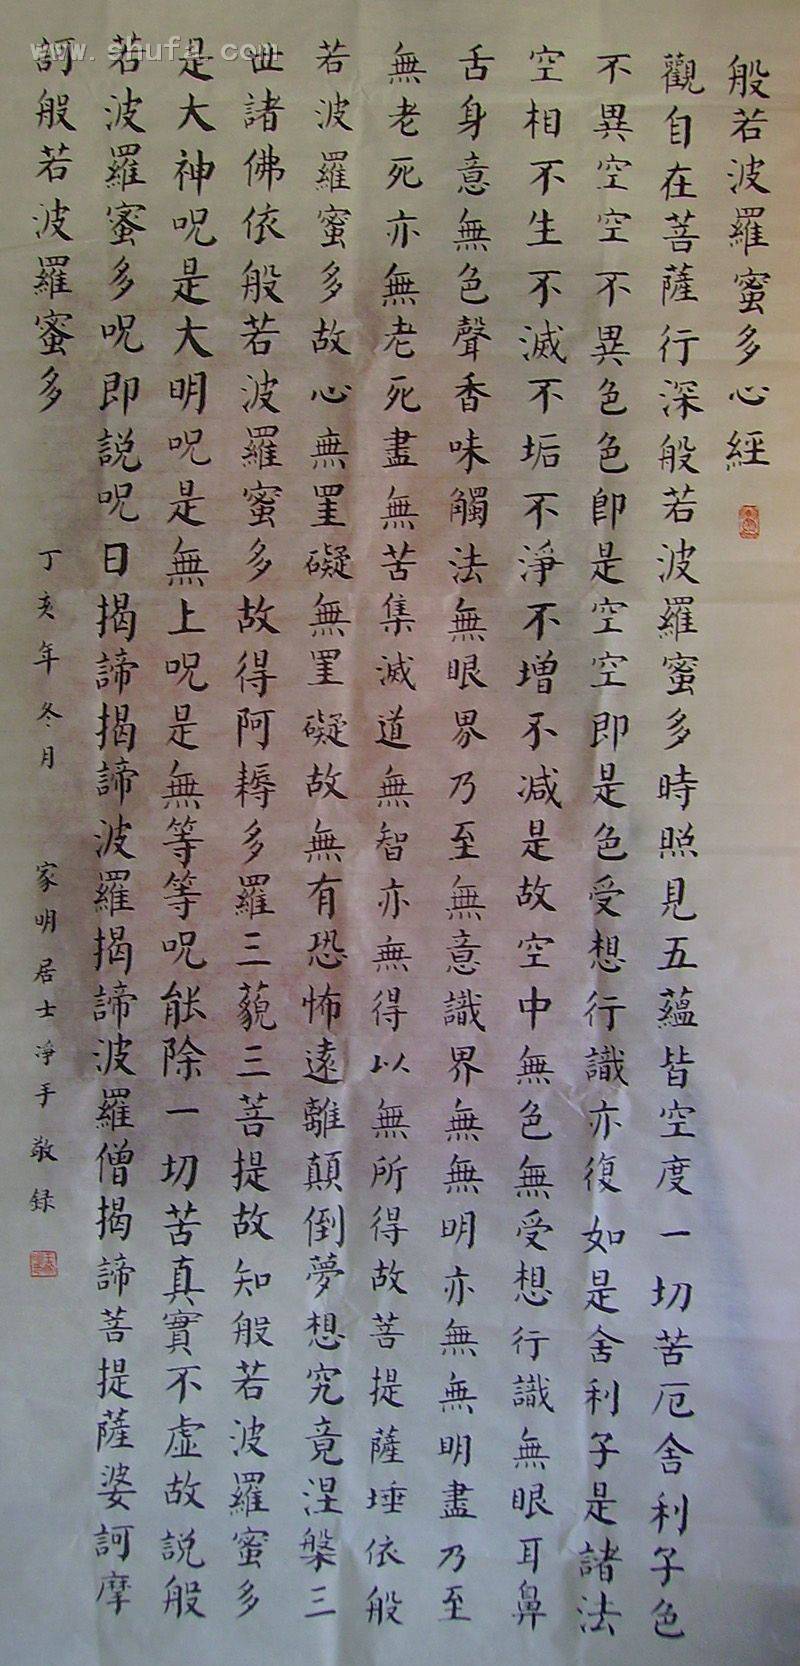 www.shufa.com
般若波羅蜜多心經
觀自在菩薩行深般若波羅蜜多時照見五蘊皆空度一切苦厄舍利子色
不異空空不異色色即是空空即是色受想行識亦復如是舍利子是諸法
空相不生不滅不垢不淨不增不減是故空中無色無受想行識無眼耳鼻
舌身意無色聲香味觸法無眼界乃至無意識界無無明亦無無明盡乃至
無老死亦無老死盡無苦集滅道無智亦無得以無所得故菩提薩埵依般
若波羅蜜多故心無罣礙無罣礙故無有恐怖遠離顛倒夢想究竟涅槃三
世諸佛依般若波羅蜜多故得阿耨多羅三藐三菩提故知般若波羅蜜多
是大神呪是大明呪是無上呪是無等等呪能除一切苦真實不虛故說般
若波羅蜜多呪即說呪曰揭諦揭諦波羅揭諦波羅僧揭諦菩提薩婆訶摩
訶般若波羅蜜多 丁亥年冬月 家明居士淨手敬録